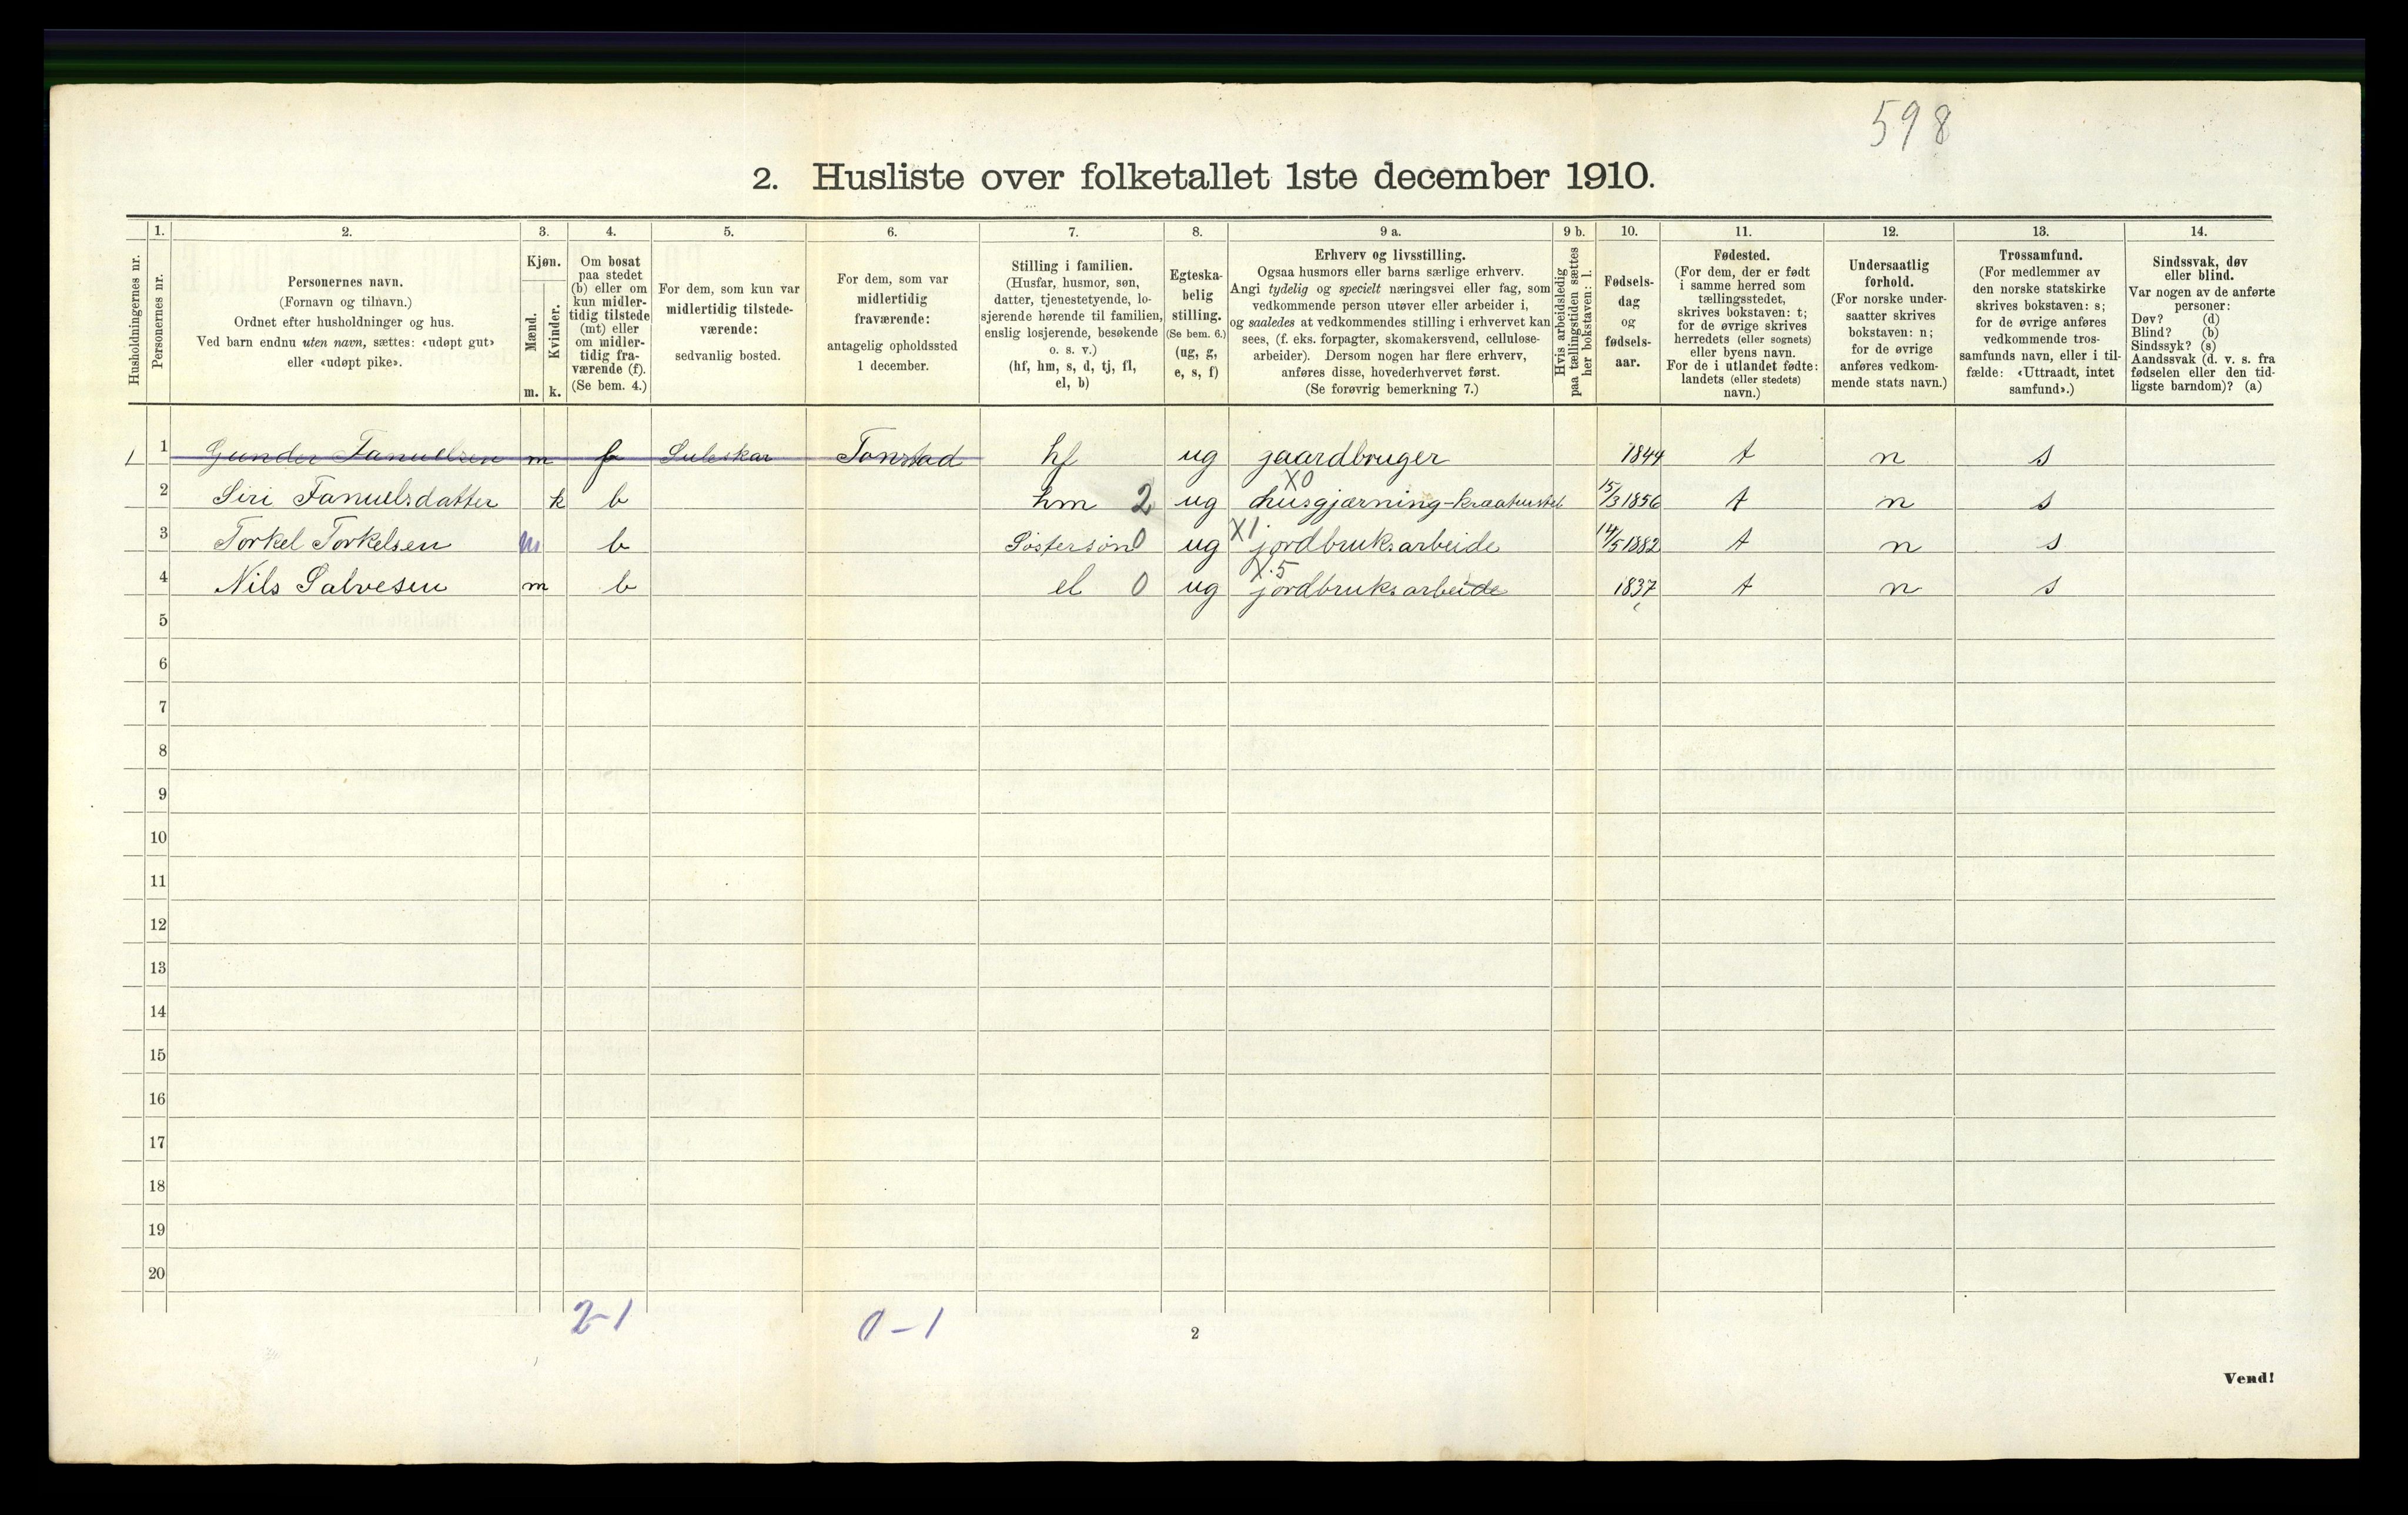 598
2. Husliste over folketallet 1ste december 1910.
Husholdningernes nr.
1.
Personernes nr.
2.
Personernes navn.
(Fornavn og tilnavn.)
Ordnet efter husholdninger og hus.
Ved barn endnu uten navn, sættes: «udøpt gut»
eller «udøpt pike».
3.
Kjøn.
Mænd.
Kvinder.
m. k.
4.
Om bosat
paa stedet
(b) eller om
kun midler-
tidig tilstede
(mt) eller
om midler-
tidig fra-
værende (f).
(Se bem. 4.)
5.
For dem, som kun var
midlertidig tilstede-
værende:
sedvanlig bosted.
6.
For dem, som var
midlertidig
fraværende:
antagelig opholdssted
1 december.
7.
Stilling i familien.
(Husfar, husmor, søn,
datter, tjenestetyende, lo-
sjerende hørende til familien,
enslig losjerende, besøkende
o. s. v.)
(hf, hm, s, d, tj, fl,
el, b)
8.
Egteska-
belig
stilling.
(Se bem. 6.)
(ug, g,
e, s, f)
9 a.
Erhverv og livsstilling.
Ogsaa husmors eller barns særlige erhverv.
Angi tydelig og specielt næringsvei eller fag, som
vedkommende person utøver eller arbeider i,
og saaledes at vedkommendes stilling i erhvervet kan
sees, (f. eks. forpagter, skomakersvend, cellulose-
arbeider). Dersom nogen har flere erhverv,
anføres disse, hovederhvervet først.
(Se forøvrig bemerkning 7.)
9 b.
Hvis arbeidsledig
paa tællingstiden sættes
her bokstaven: l.
10.
Fødsels-
dag
og
fødsels-
aar.
11.
Fødested.
(For dem, der er født
i samme herred som
tællingsstedet,
skrives bokstaven: t;
for de øvrige skrives
herredets (eller sognets)
eller byens navn.
For de i utlandet fødte:
landets (eller stedets)
navn.)
12.
Undersaatlig
forhold.
(For norske under-
saatter skrives
bokstaven: n;
for de øvrige
anføres vedkom-
mende stats navn.)
13.
Trossamfund.
(For medlemmer av
den norske statskirke
skrives bokstaven: s;
for de øvrige anføres
vedkommende tros-
samfunds navn, eller i til-
fælde: «Uttraadt, intet
samfund».)
14.
Sindssvak, døv
eller blind.
Var nogen av de anførte
personer:
Døv? (d)
Blind? (b)
Sindssyk? (s)
Aandssvak (d. v. s. fra
fødselen eller den tid-
ligste barndom)? (a)
1 1 Gunder Fanuelsen m f Suleskar Tonstad hf ug gaardbruger 1844 t n s
X0
2 Siri Fanuelsdatter k b hm 2 ug husgjærning- 15/3 1856 t n s
X1
3 Torkel Torkelsen m b Søstersøn 0 ug jordbruksarbeide 14/5 1882 t n s
X.5
4 Nils Salvesen m b el 0 ug jordbruksarbeide 1837 t n s
5
6
7
8
9
10
11
12
13
14
15
16
17
18
19
20
2-1 0-1
2
Vend!